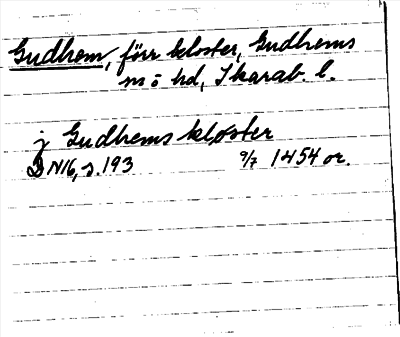 Gudhem, förr kloster, Gudhems
m o hd, Skarab. l.
j Gudhems kloster
DN16, s. 193 9/7 1454 or.